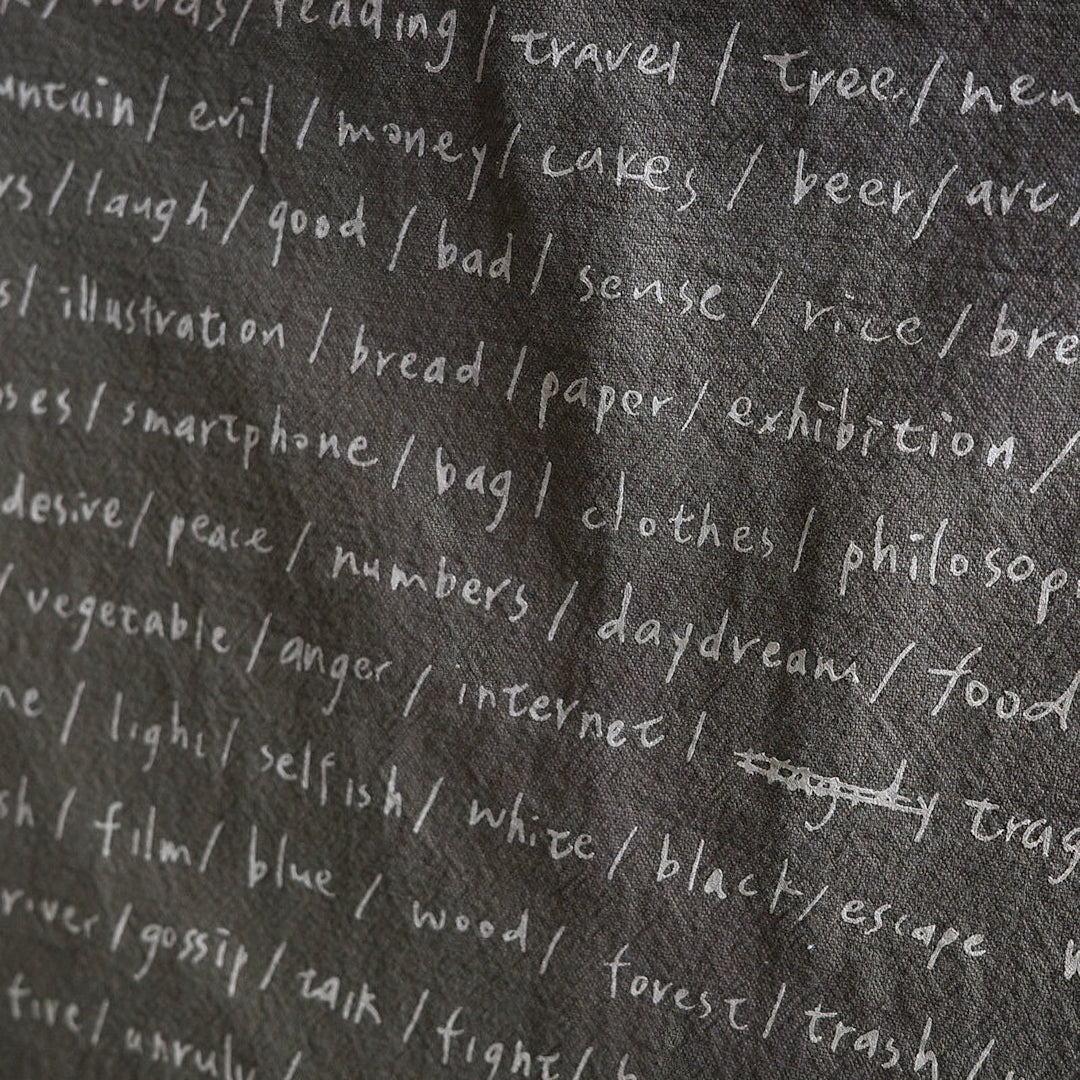 words/reading / travel / tree/
evil / money/ cakes / beer/ art
/ laugh / good / bad / sense / rice /
/ illustration / bread / paper / exhibition /
/ smartphone / bag / clothes /
desire/ peace / numbers / daydream / food
/ vegetable / anger / internet /
/ light/ selfish/ white / black/ escape
/ film/ blue / wood/ forest / trash /
river/gossip/ talk / fight /
/ unruly /